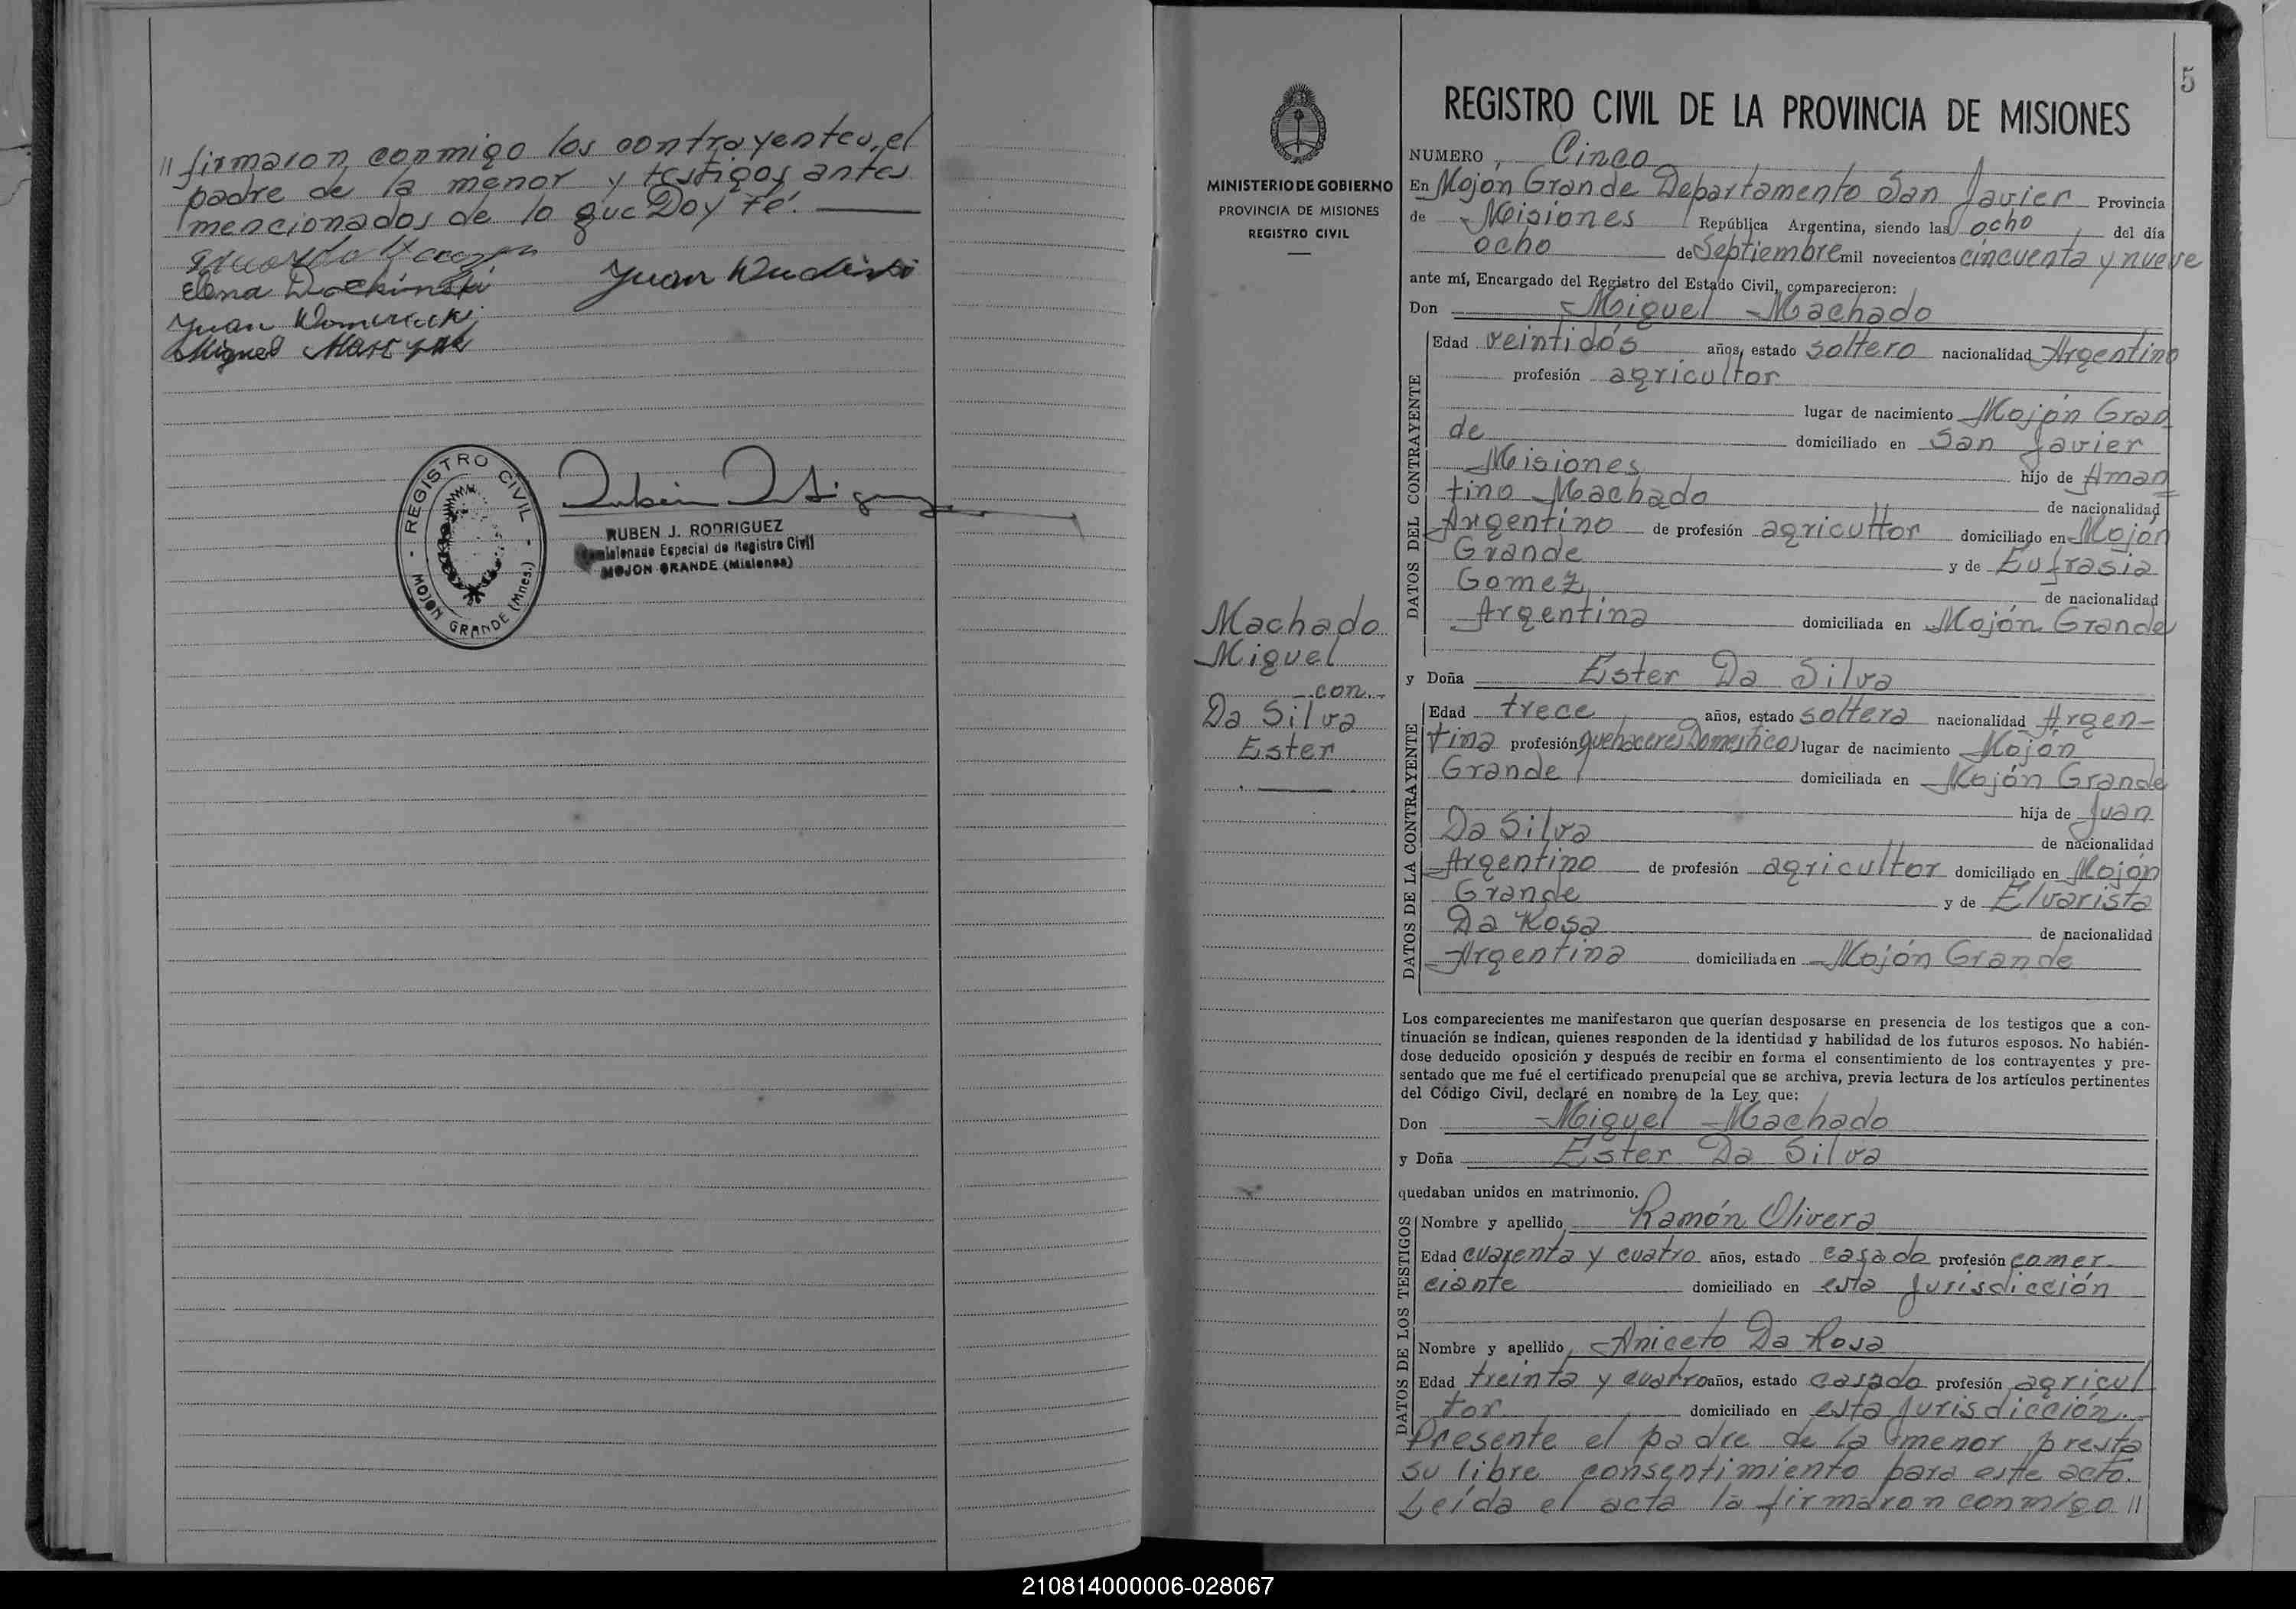 // firmaron conmigo los contrayentes, el
padre de la menor y testigos antes
mencionados de lo que Doy Fé.
Elena
Juan
Juan
Miguel
REGISTRO CIVIL
MOJON GRANDE (Mnes.)
RUBEN J. RODRIGUEZ
Comisionado Especial de Registro Civil
MOJON GRANDE (Misiones)
5
MINISTERIO DE GOBIERNO
PROVINCIA DE MISIONES
REGISTRO CIVIL
Machado
Miguel
con
Da Silva
Ester
REGISTRO CIVIL DE LA PROVINCIA DE MISIONES
NUMERO Cinco
En Mojón Grande Departamento San Javier Provincia
de Misiones República Argentina, siendo las ocho del día
ocho de Septiembre mil novecientos cincuenta y nueve
ante mí, Encargado del Registro del Estado Civil, comparecieron:
Don Miguel Machado
DATOS DEL CONTRAYENTE
Edad veintidós años, estado soltero nacionalidad Argentino
profesión agricultor
lugar de nacimiento Mojón Gran
de domiciliado en San Javier
Misiones hijo de Aman
tino Machado de nacionalidad
Argentino de profesión agricultor domiciliado en Mojón
Grande y de Eufrasia
Gomez de nacionalidad
Argentina domiciliada en Mojón Grande
y Doña Ester Da Silva
DATOS DE LA CONTRAYENTE
Edad trece años, estado soltera nacionalidad Argen-
tina profesión quehaceres Domesticos lugar de nacimiento Mojón
Grande domiciliada en Mojón Grande
hija de Juan
Da Silva de nacionalidad
Argentino de profesión agricultor domiciliado en Mojón
Grande y de Elvarista
Da Rosa de nacionalidad
Argentina domiciliada en Mojón Grande
Los comparecientes me manifestaron que querían desposarse en presencia de los testigos que a con-
tinuación se indican, quienes responden de la identidad y habilidad de los futuros esposos. No habién-
dose deducido oposición y después de recibir en forma el consentimiento de los contrayentes y pre-
sentado que me fué el certificado prenupcial que se archiva, previa lectura de los artículos pertinentes
del Código Civil, declaré en nombre de la Ley que:
Don Miguel Machado
y Doña Ester Da Silva
quedaban unidos en matrimonio.
DATOS DE LOS TESTIGOS
Nombre y apellido Ramón Olivera
Edad cuarenta y cuatro años, estado casado profesión comer
ciante domiciliado en esta Jurisdicción
Nombre y apellido Aniceto Da Rosa
Edad treinta y cuatro años, estado casado profesión agricul
tor domiciliado en esta Jurisdicción.
Presente el padre de la menor presta
su libre consentimiento para este acto.
Leída el acta la firmaron conmigo //
210814000006-028067